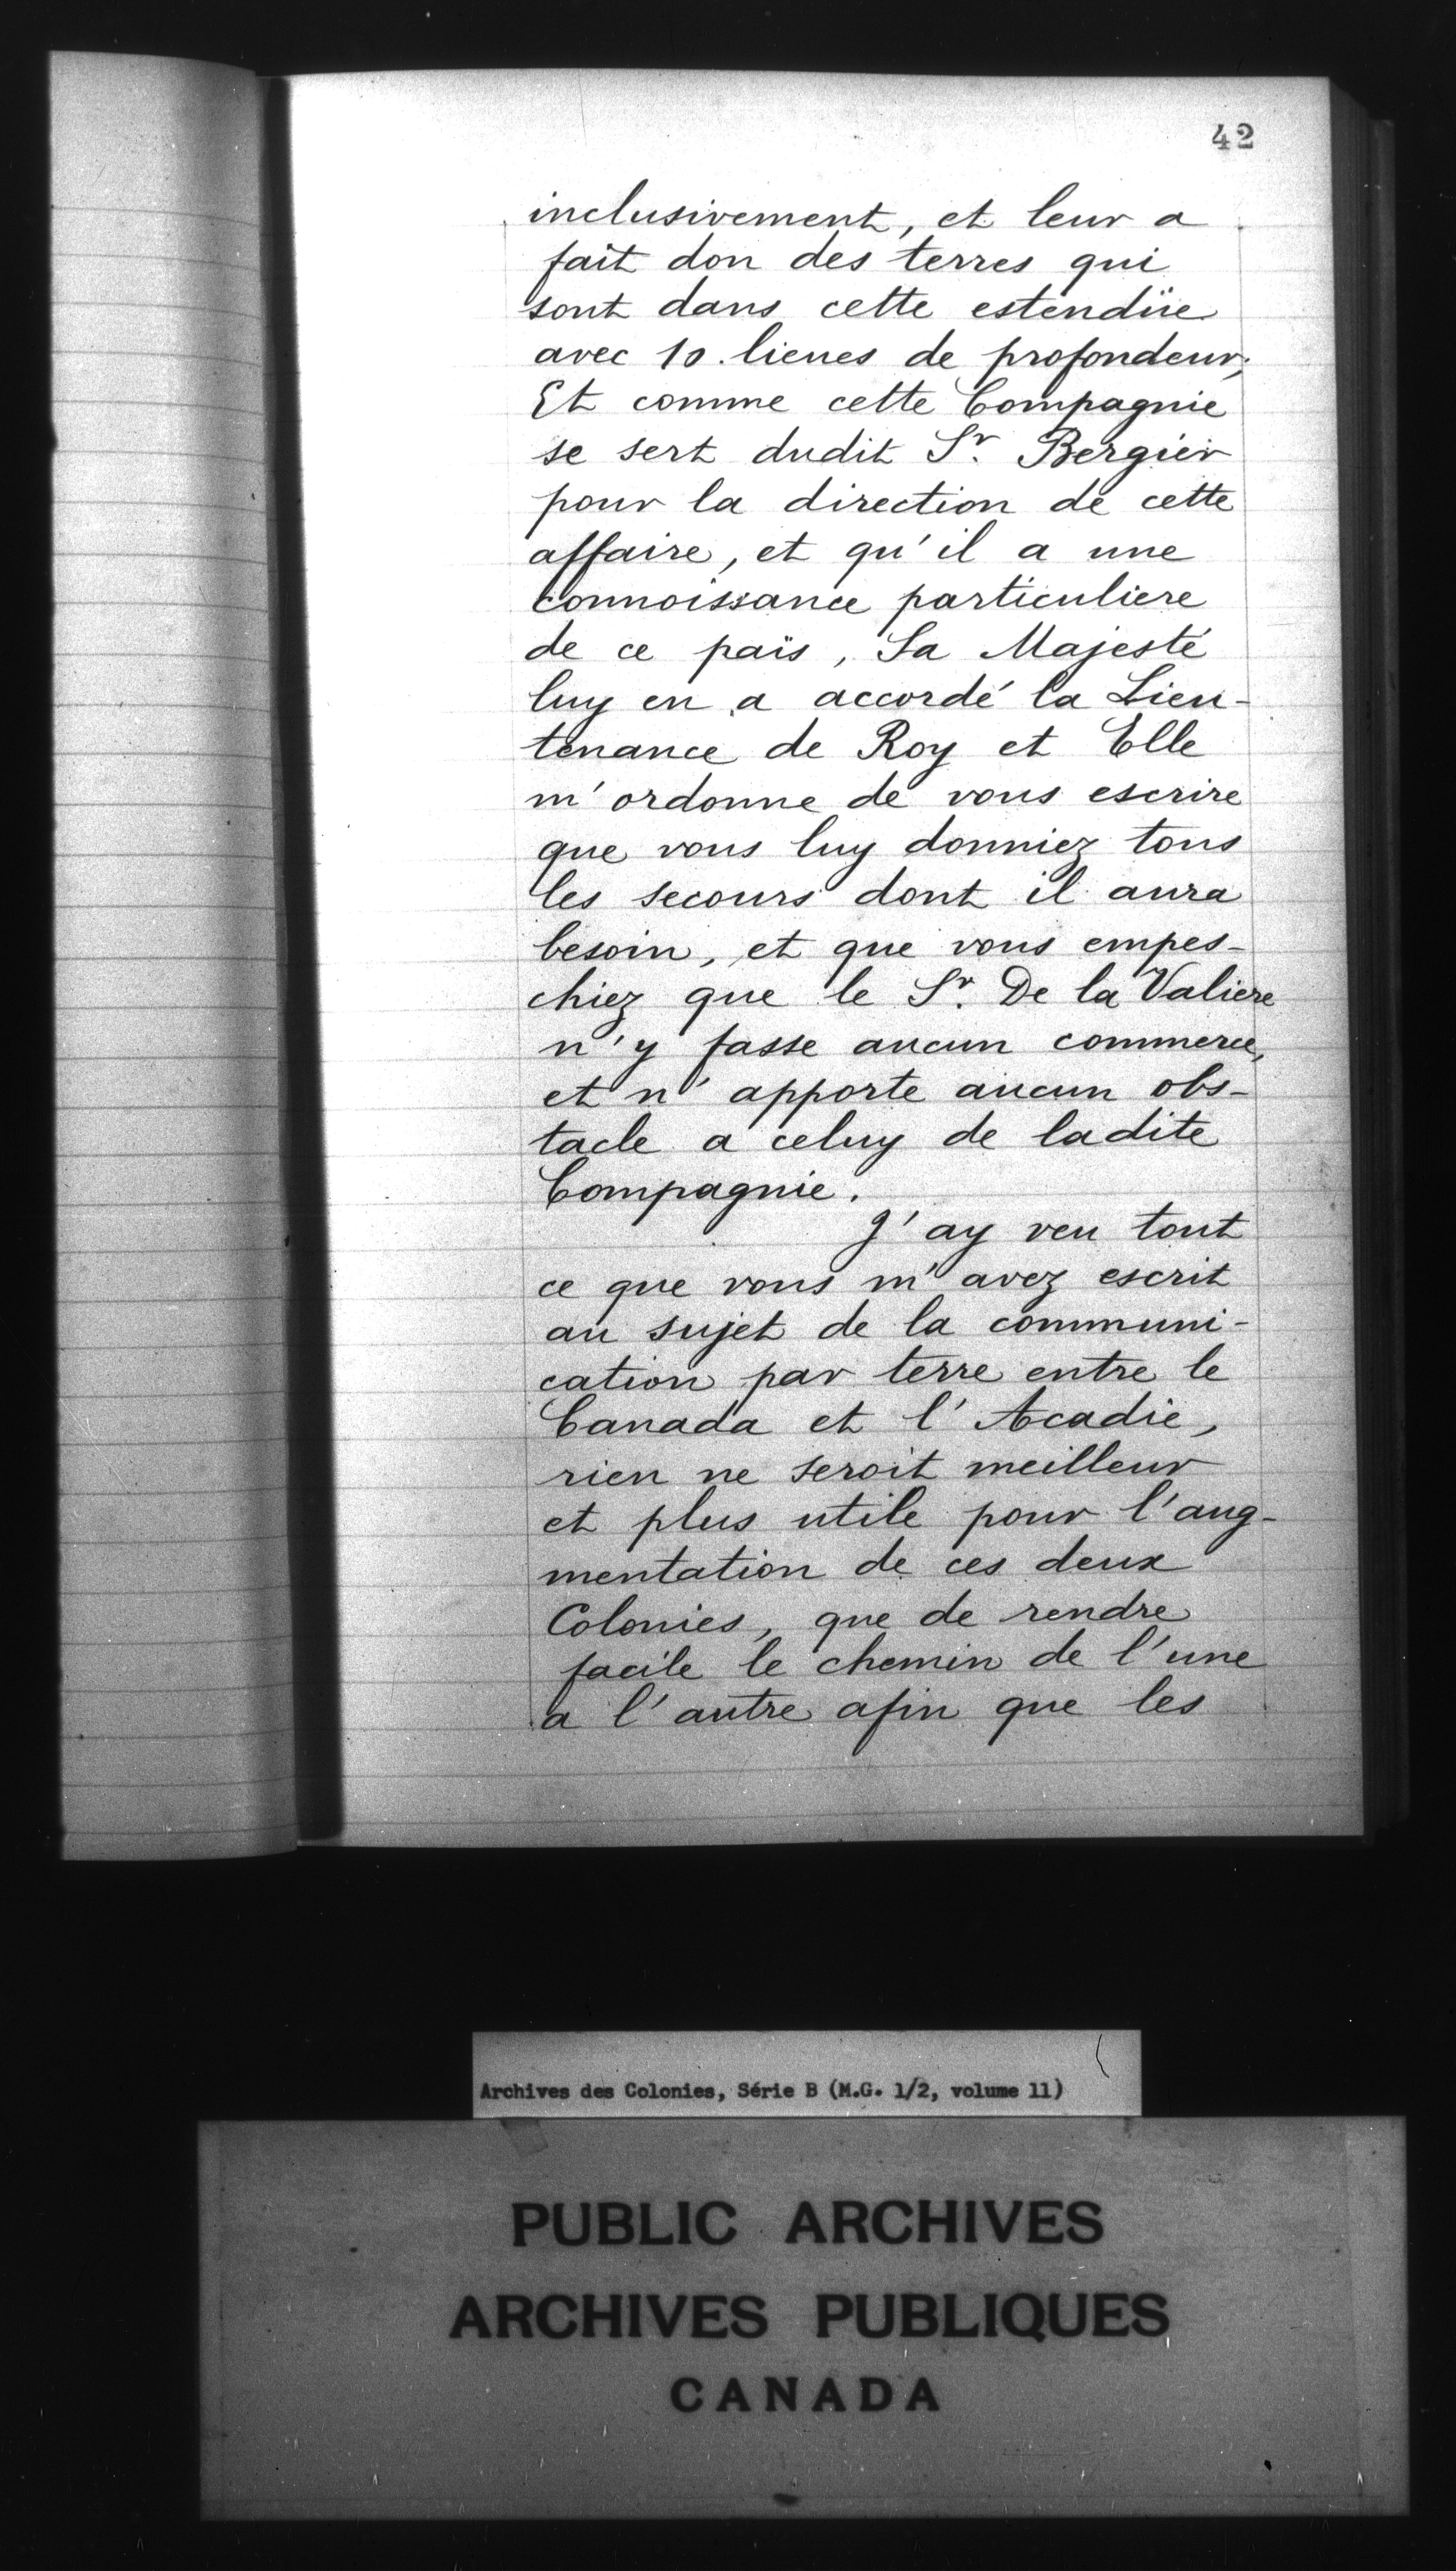 42
inclusivement, et leur a
fait don des terres qui
sont dans cette estendüe
avec 10. lieues de profondeur;
Et comme cette Compagnie
se sert dudit Sr. Bergier
pour la direction de cette
affaire, et qu'il a une
connoissance particuliere
de ce païs, Sa Majesté
luy en a accordé la Lieu-
tenance de Roy et Elle
m'ordonne de vous escrire
que vous luy donniez tous
les secours dont il aura
besoin, et que vous empes-
chiez que le Sr. De la Valiere
n'y fasse aucun commerce,
et n'apporte aucun obs-
tacle a celuy de ladite
Compagnie.
J'ay veu tout
ce que vous m'avez escrit
au sujet de la communi-
cation par terre entre le
Canada et l'Acadie,
rien ne seroit meilleur
et plus utile pour l'aug-
mentation de ces deux
Colonies, que de rendre
facile le chemin de l'une
a l'autre afin que les
Archives des Colonies, Série B (M.G. 1/2, volume 11)
PUBLIC ARCHIVES
ARCHIVES PUBLIQUES
CANADA